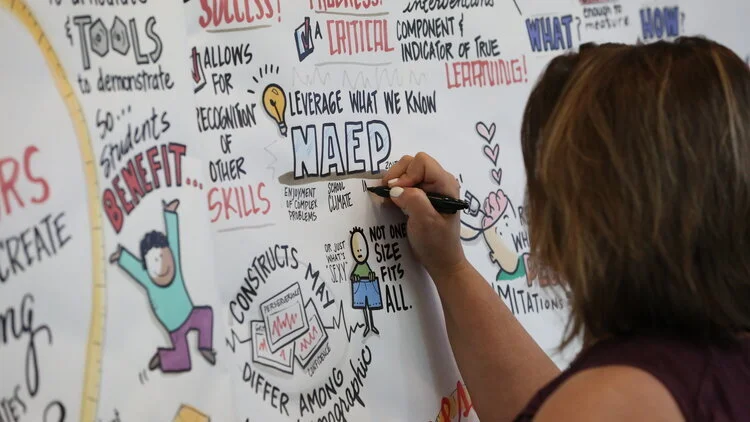 TOOLS
to demonstrate
So...
Students
BENEFIT...
CREATE
SUCCESS!
ALLOWS
FOR
RECOGNITION
OF
OTHER
SKILLS
A CRITICAL
COMPONENT &
INDICATOR OF TRUE
LEARNING!
LEVERAGE WHAT WE KNOW
NAEP
ENJOYMENT
OF COMPLEX
PROBLEMS
SCHOOL
CLIMATE
OR JUST
WHAT'S
"SEXY"
NOT ONE
SIZE
FITS
ALL.
CONSTRUCTS MAY
PERSEVERANCE
CONFIDENCE
DIFFER AMONG
WHAT?
enough to
measure
HOW?